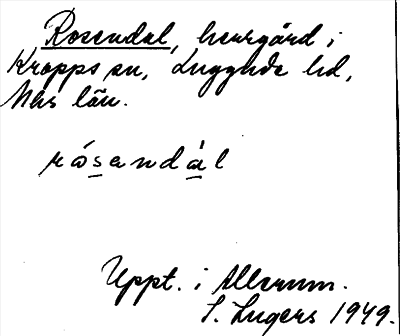 Rosendal, herrgård i
Kropps sn, Luggude hd,
Mlhs län.
rósandàl
Uppt. i Allerum.
S. Ingers 1949.